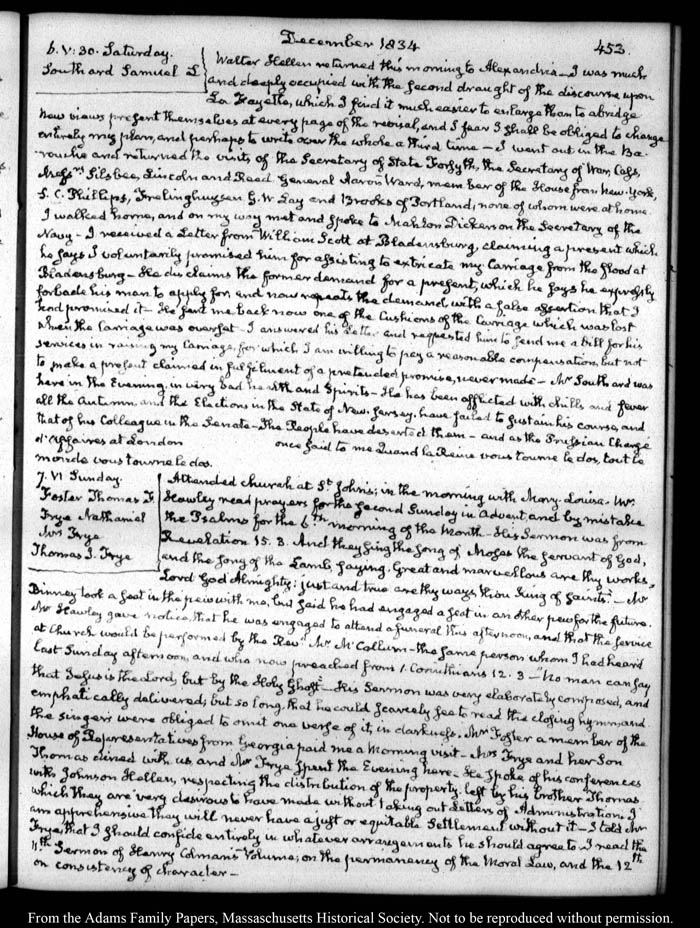 December 1834
453.
6. V: 30. Saturday.
Southard Samuel L.
Walter Hellen returned this morning to Alexandria — I was much
and deeply occupied with the second draught of the discourse upon
La Fayette, which I find it much easier to enlarge than to abridge
New views present themselves at every page of the revisal, and I fear I shall be obliged to change
entirely my plan, and perhaps to write over the whole a third time — I went out in the Ba-
rouche and returned the visits of the Secretary of State Forsyth, the Secretary of War, Cass,
Messrs Silsbee, Lincoln and Reed. General Aaron Ward, member of the House from New-York,
S. C. Phillips, Frelinghuysen G. W. Lay and Brooks of Portland; none of whom were at home
I walked home, and on my way met and spoke to Mahlon Dickerson the Secretary of the
Navy — I received a Letter from William Scott at Bladensburg, claiming a present which
he says I voluntarily promised him for assisting to extricate my Carriage from the flood at
Bladensburg — He disclaims the former demand for a present, which he says he expressly
forbade his man to apply for, and now repeats the demand with a false assertion that I
had promised it — He sent me back now one of the Cushions of the Carriage which was lost
when the Carriage was overset — I answered his Letter and requested him to send me a bill for his
services in raising my Carriage, for which I am willing to pay a reasonable compensation, but not
to make a present claimed in fulfilment of a pretended promise, never made — Mr Southard was
here in the Evening, in very bad health and Spirits — He has been afflicted with chills and fever
all the Autumn, and the Elections in the State of New Jersey, have failed to sustain his course, and
that of his Colleague in the Senate — The People have deserted them — and as the Prussian Charge
d'Affaires at London once said to me Quand la Reine vous tourne le dos, tout le
monde vous tourne le dos.
7. VI Sunday.
Foster Thomas F
Frye Nathaniel
Mrs Frye
Thomas J. Frye
Attended church at St Johns; in the morning with Mary Louisa. Mr
Hawley read prayers for the second Sunday in Advent, and by mistake
the Psalms for the 6th morning of the Month — His Sermon was from
Revelation 15. 3. And they sing the song of Moses the servant of God,
and the song of the Lamb, saying, Great and marvellous are thy works,
Lord God Almighty; just and true are thy ways, thou King of saints." — Mr
Binney took a seat in the pew with me, but said he had engaged a seat in another pew for the future.
Mr Hawley gave notice that he was engaged to attend a funeral this afternoon, and that the service
at Church would be performed by the Revd Mr McCollum — the same person whom I had heard
last Sunday afternoon, and who now preached from 1. Corinthians 12. 3 — "No man can say
that Jesus is the Lord, but by the Holy Ghost" — His Sermon was very elaborately composed, and
emphatically delivered; but so long, that he could scarcely see to read the closing hymn, and
the singers were obliged to omit one verse of it, in darkness. Mr Foster a member of the
House of Representatives from Georgia paid me a Morning visit — Mrs Frye and her Son
Thomas dined with us, and Mr Frye spent the Evening here — He spoke of his conferences
with Johnson Hellen, respecting the distribution of the property left by his brother Thomas
which they are very desirous to have made without taking out Letters of Administration. I
am apprehensive they will never have a just or equitable Settlement without it — I told Mr
Frye, that I should confide entirely in whatever arrangements he should agree to. I read the
11th Sermon of Henry Colman's Volume; on the permanency of the Moral Law, and the 12th
on consistency of character —
From the Adams Family Papers, Massachusetts Historical Society. Not to be reproduced without permission.